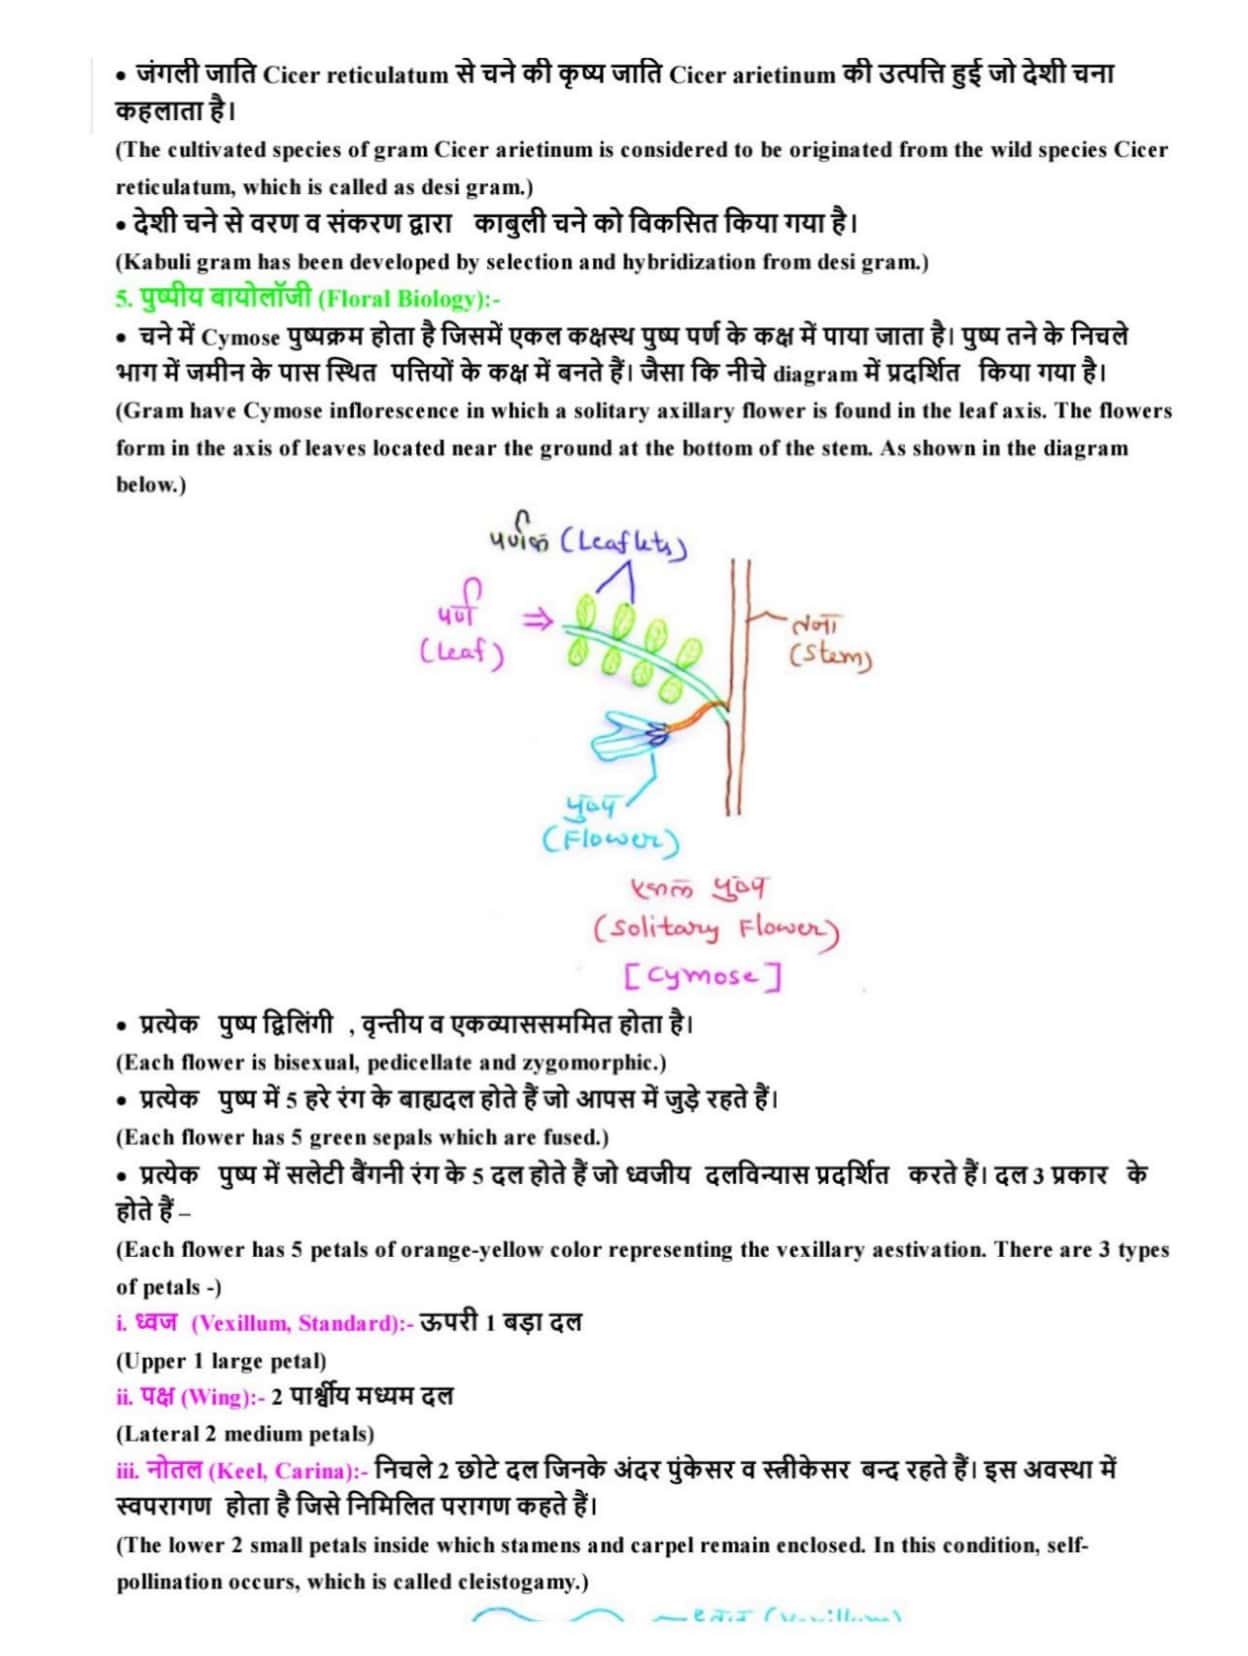 • जंगली जाति Cicer reticulatum से चने की कृष्य जाति Cicer arietinum की उत्पत्ति हुई जो देशी चना
कहलाता है।
(The cultivated species of gram Cicer arietinum is considered to be originated from the wild species Cicer
reticulatum, which is called as desi gram.)
• देशी चने से वरण व संकरण द्वारा काबुली चने को विकसित किया गया है।
(Kabuli gram has been developed by selection and hybridization from desi gram.)
5. पुष्पीय बायोलॉजी (Floral Biology):-
• चने में Cymose पुष्पक्रम होता है जिसमें एकल कक्षस्थ पुष्प पर्ण के कक्ष में पाया जाता है। पुष्प तने के निचले
भाग में जमीन के पास स्थित पत्तियों के कक्ष में बनते हैं। जैसा कि नीचे diagram में प्रदर्शित किया गया है।
(Gram have Cymose inflorescence in which a solitary axillary flower is found in the leaf axis. The flowers
form in the axis of leaves located near the ground at the bottom of the stem. As shown in the diagram
below.)
(Leaflets)
पर्ण ⇒
(Leaf)
तना
(Stem)
पुष्प
(Flower)
एकल पुष्प
(Solitary Flower)
[Cymose]
• प्रत्येक पुष्प द्विलिंगी , वृन्तीय व एकव्याससममित होता है।
(Each flower is bisexual, pedicellate and zygomorphic.)
• प्रत्येक पुष्प में 5 हरे रंग के बाह्यदल होते हैं जो आपस में जुड़े रहते हैं।
(Each flower has 5 green sepals which are fused.)
• प्रत्येक पुष्प में सलेटी बैंगनी रंग के 5 दल होते हैं जो ध्वजीय दलविन्यास प्रदर्शित करते हैं। दल 3 प्रकार के
होते हैं –
(Each flower has 5 petals of orange-yellow color representing the vexillary aestivation. There are 3 types
of petals -)
i. ध्वज (Vexillum, Standard):- ऊपरी 1 बड़ा दल
(Upper 1 large petal)
ii. पक्ष (Wing):- 2 पार्श्वीय मध्यम दल
(Lateral 2 medium petals)
iii. नोतल (Keel, Carina):- निचले 2 छोटे दल जिनके अंदर पुंकेसर व स्त्रीकेसर बन्द रहते हैं। इस अवस्था में
स्वपरागण होता है जिसे निमिलित परागण कहते हैं।
(The lower 2 small petals inside which stamens and carpel remain enclosed. In this condition, self-
pollination occurs, which is called cleistogamy.)